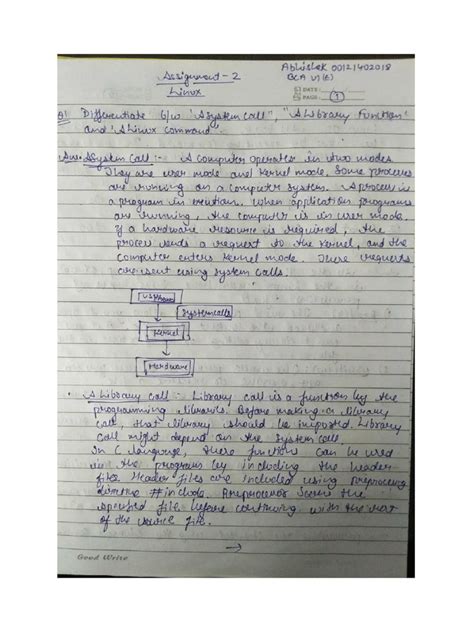 Abhishek 00121402018
Assignment - 2
BCA VI (E)
Linux
DATE:
PAGE: 1
Q1 Differentiate b/w "A System call", "A Library Function"
and "A Linux command".
Ans. A System Call :- A computer operates in two modes
They are user mode and Kernel mode. Some processes
are running on a computer system. A process is
a program in execution. When application programs
are running, the computer is in user mode.
If a hardware resource is required, the
process sends a request to the Kernel, and the
computer enters Kernel mode. These requests
are sent using system calls.
System calls
Kernel
Hardware
• A library call :- Library call is a function by the
programming libraries. Before making a library
call, that library should be imported. Library
call might depend on the system call.
In C language, these functions can be used
in the program by including the header
files. Header files are included using preprocessing
directive #include. Preprocessor Scans the
specified file before continuing with the rest
of the source file.
→
Good Write